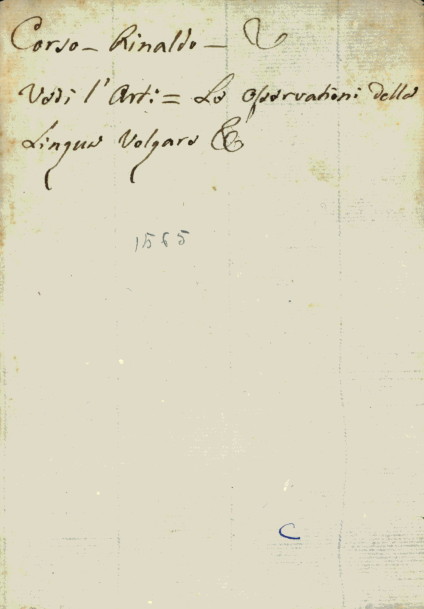 Corso - Rinaldo -
Vedi l'Arti = Le Osservationi della
Lingua Volgare &
1565
C